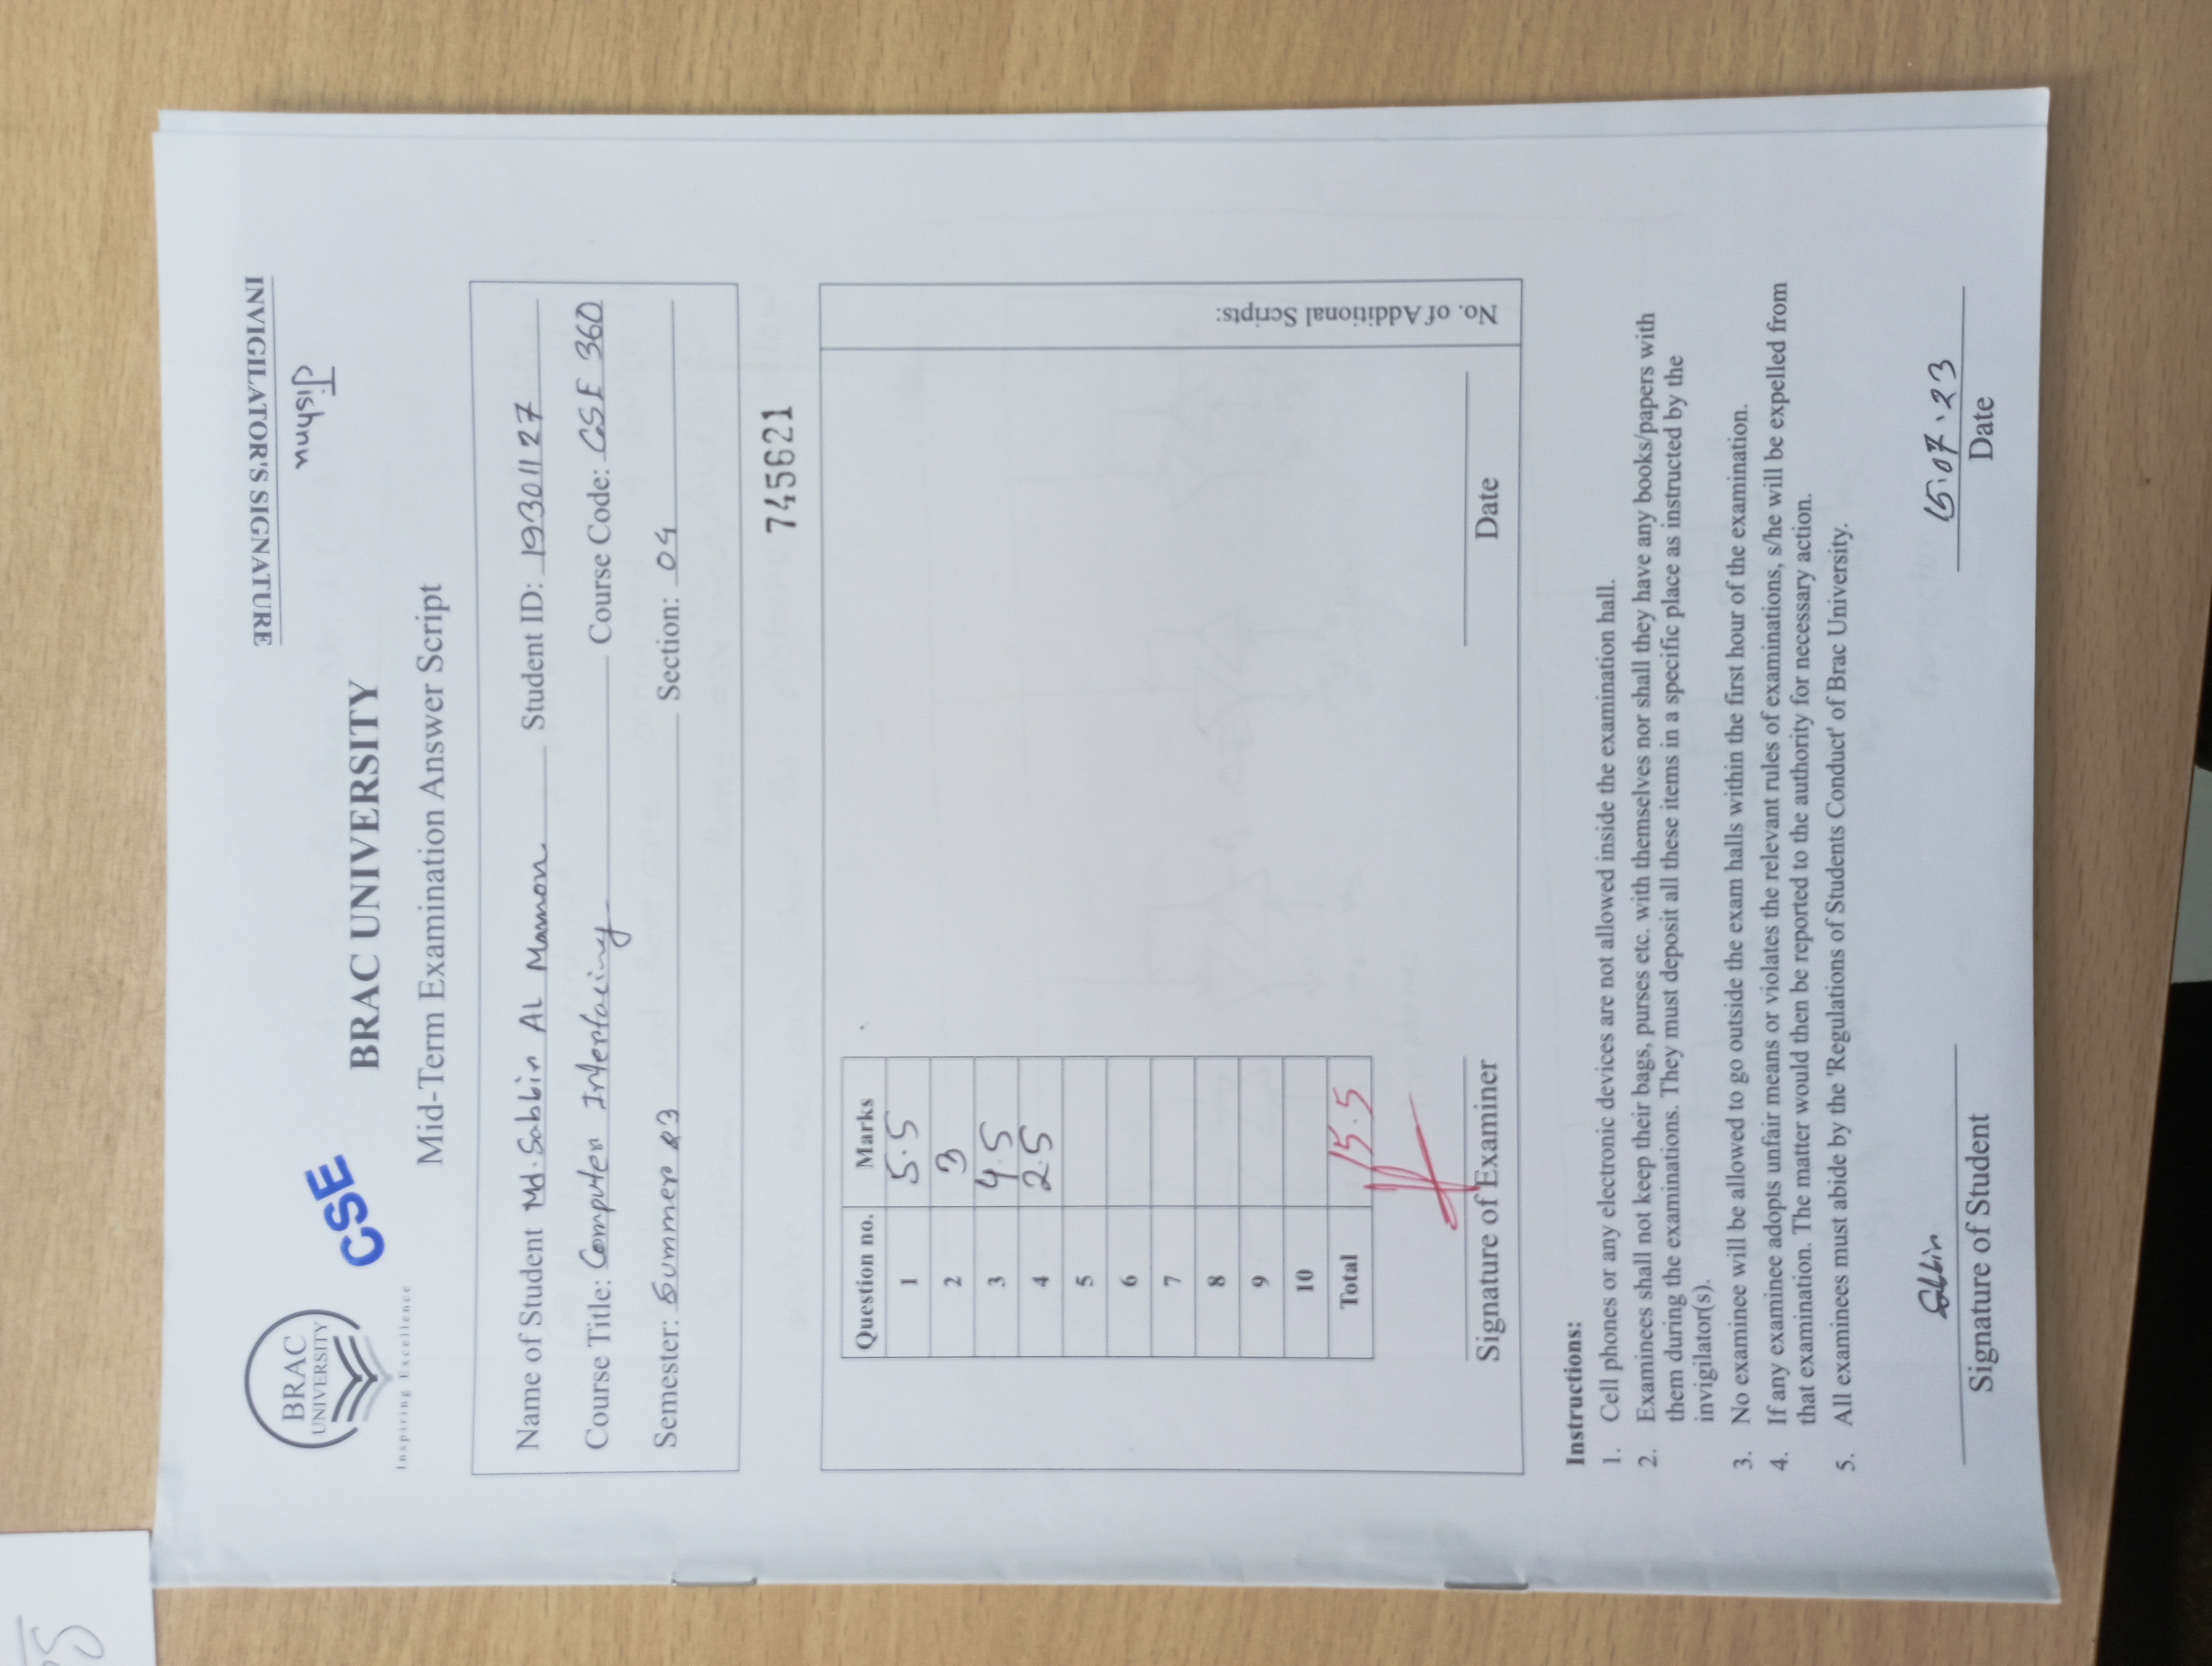 5
INVIGILATOR'S SIGNATURE
Jishnu
BRAC
UNIVERSITY
Inspiring Excellence
CSE
BRAC UNIVERSITY
Mid-Term Examination Answer Script
Name of Student Md. Sabbir AL Mamon Student ID: 19301127
Course Title: Computer Interfacing Course Code: CSE 360
Semester: Summer 23 Section: 04
745621
Question no. Marks
1 5.5
2 3
3 4.5
4 2.5
5
6
7
8
9
10
Total 15.5
Signature of Examiner
Date
No. of Additional Scripts:
Instructions:
1. Cell phones or any electronic devices are not allowed inside the examination hall.
2. Examinees shall not keep their bags, purses etc. with themselves nor shall they have any books/papers with
them during the examinations. They must deposit all these items in a specific place as instructed by the
invigilator(s).
3. No examinee will be allowed to go outside the exam halls within the first hour of the examination.
4. If any examinee adopts unfair means or violates the relevant rules of examinations, s/he will be expelled from
that examination. The matter would then be reported to the authority for necessary action.
5. All examinees must abide by the 'Regulations of Students Conduct' of Brac University.
Sabbir 15.07.23
Signature of Student Date